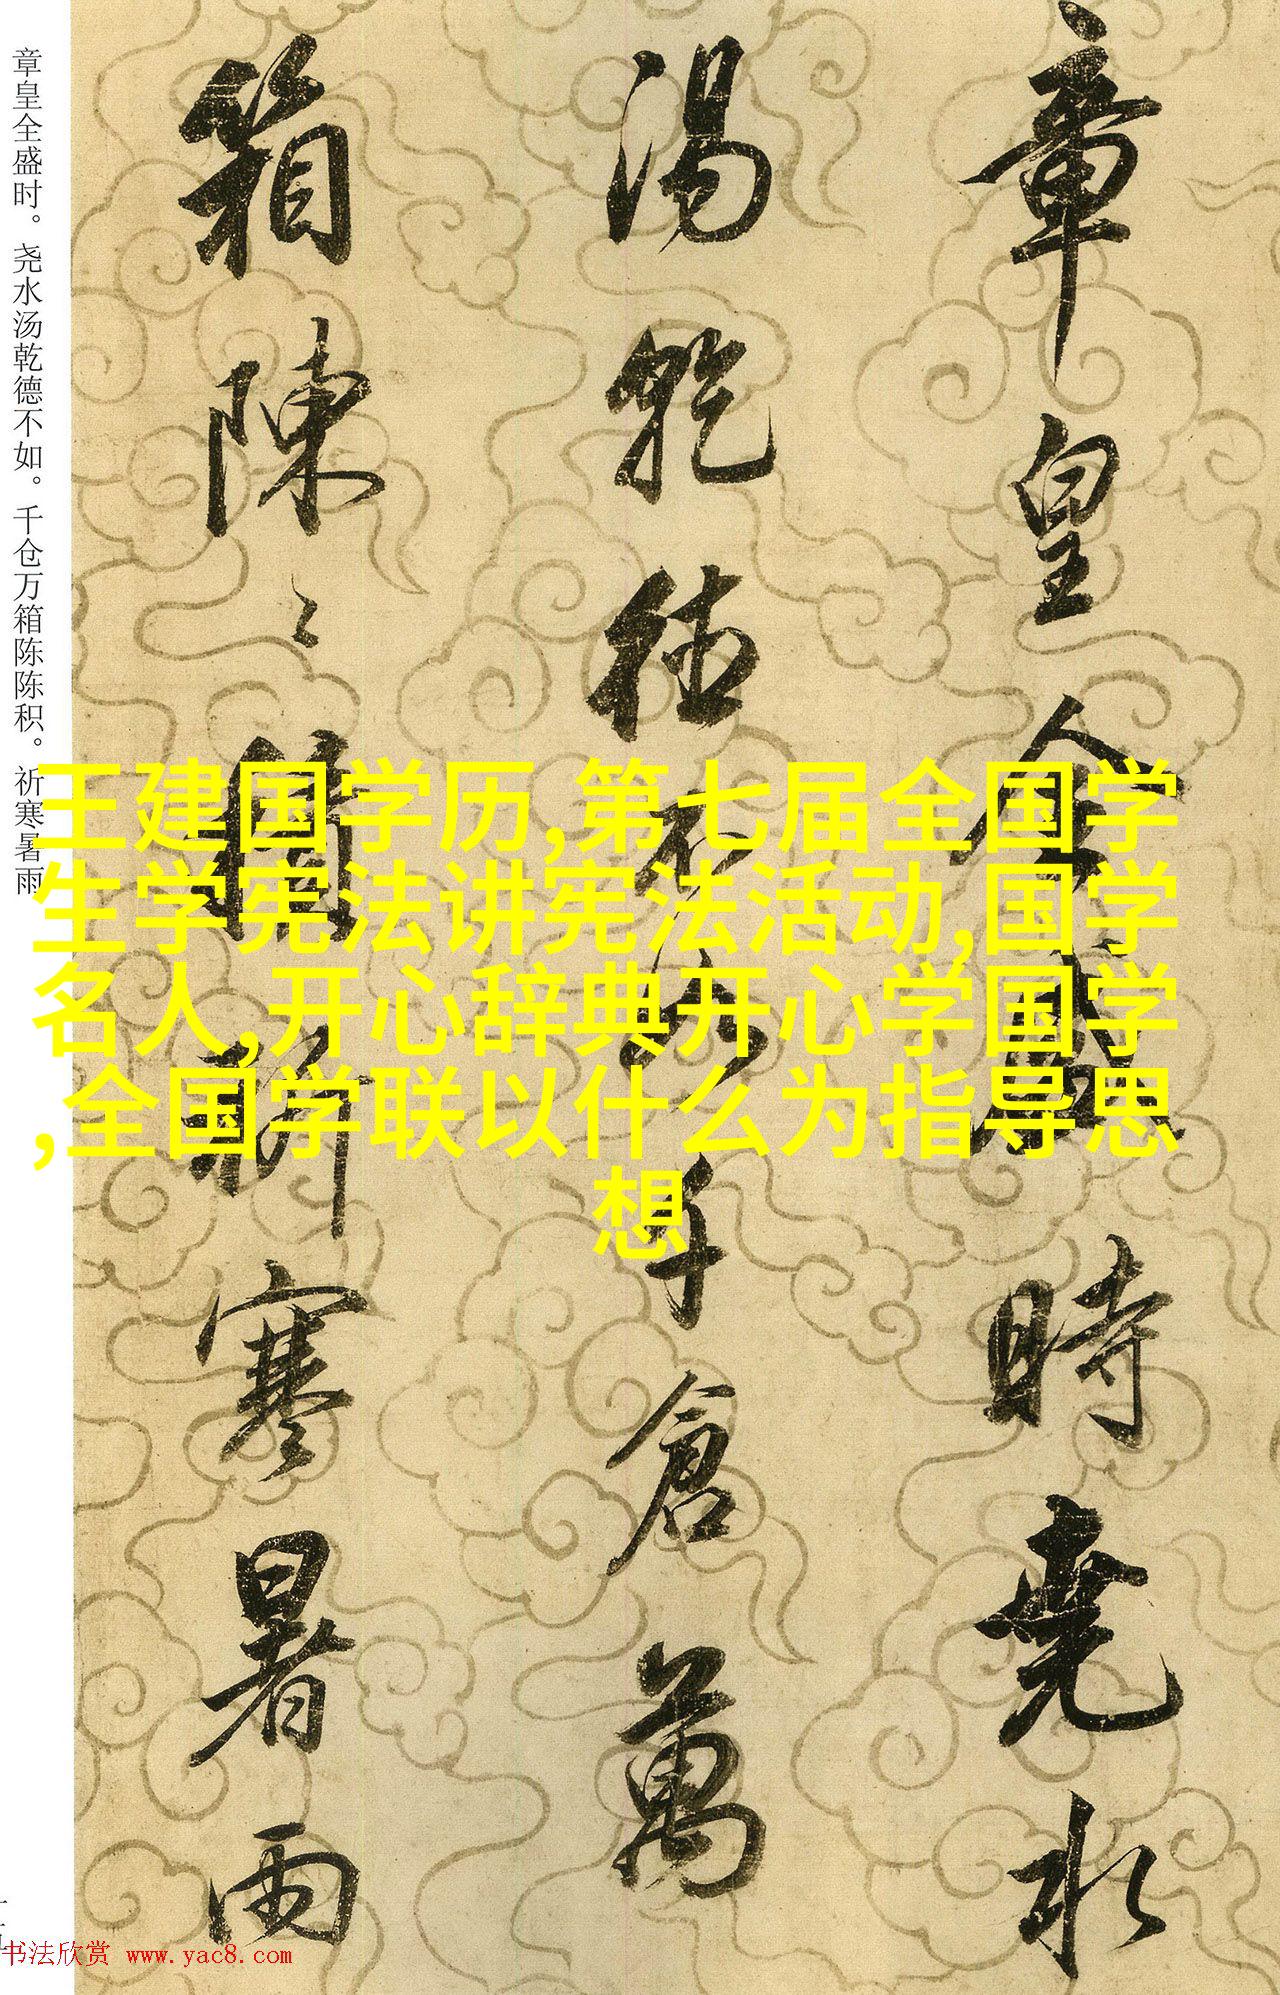 章皇全盛時堯水
湯乾德不如千倉萬
箱陳〻積祈寒暑雨
章皇全盛时。尧水汤乾德不如。千仓万箱陈陈积。祈寒暑雨
王建国学历,第七届全国学
生学宪法讲宪法活动,国学
名人,开心辞典开心学国学
,全国学联以什么为指导思
想
书法欣赏 www.yac8.com